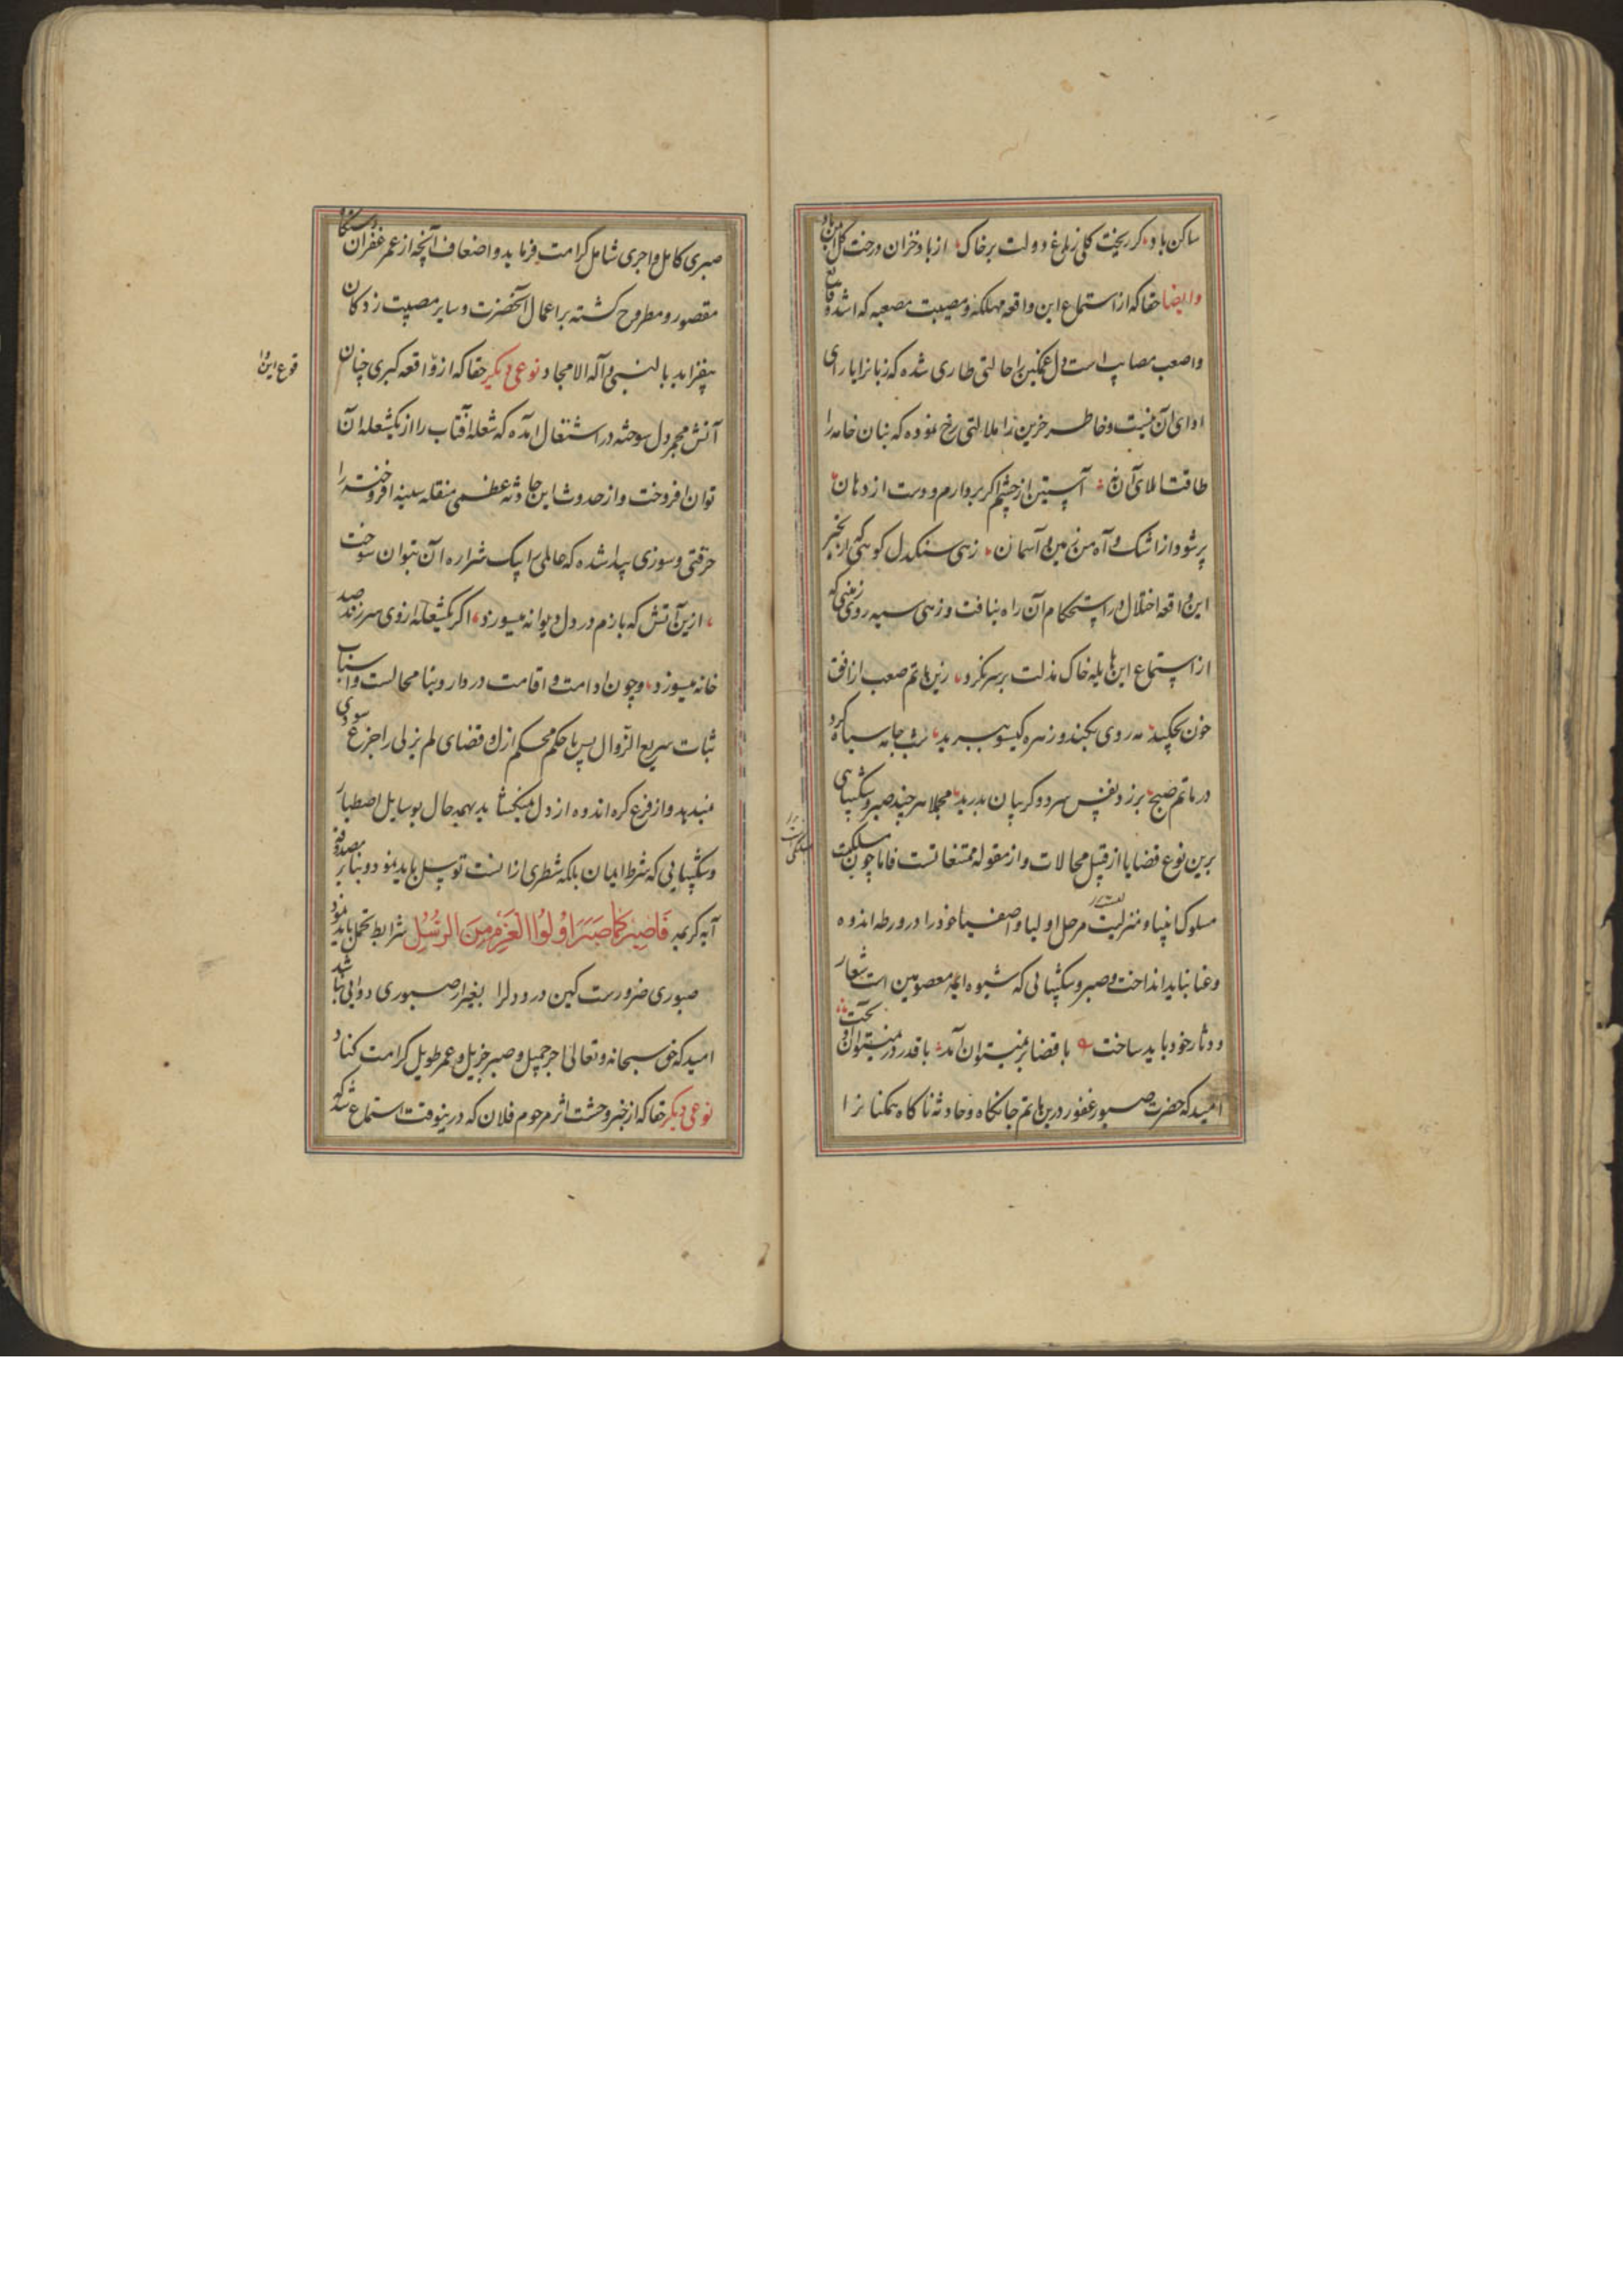 ساکن باد گر ریخت گلی ز باغ دولت بر خاک از باد خزان درخت گل ایمن باد
وایضا حقا که از استماع این واقعه مهلکه و مصیبت مصعبه که اشد وقایع
واصعب مصایب است دل غمگین را حالتی طاری شده که زبانرا یارای
ادای آن نیست و خاطر حزین را ملالتی رخ نموده که بنان خامه را
طاقت املای آن نه آستین از چشم اگر بردارم و دست از دهان
پر شود از اشک و آه من زمین و آسمان زهی سنگدل کوهی که از خبر
این واقعه اختلال در استحکام آن راه نیافت و زهی سیه روی زمینی که
از استماع این هایله خاک مذلت بر سر نکرد زین ماتم صعب از افق
خون بچکید مه روی بکند و زهره گیسو ببرید شب جامه سیاه کرد
در ماتم صبح برزد نفس سرد و گریبان بدرید مجملا هر چند صبر و شکیبایی
برین نوع قضایا از قبیل محالات و از مقوله ممتنعاتست فاما چون مسلکیست
مسلوک انبیا و منزلیست مرحل اولیا و اصفیا خود را در ورطه اندوه
وعنا نباید انداخت و صبر و شکیبائی که شیوه ایمه معصومین است شعار
و دثار خود باید ساخت با قضا بر نمیتوان آمد با قدر در نمیتوان آویخت
امید که حضرت صبور غفور درین ماتم جانکاه و حادثه ناگاه همگنانرا
صبری کامل و اجری شامل کرامت فرماید و اضعاف آنچه از عمر غفران دستگاه
مقصور و مطروح گشته بر اعمال آنحضرت و سایر مصیبت زدگان
بیفزاید بالنبی وآله الامجاد نوعی دیگر حقا که از واقعه کبری چنان
قوع این وا
آتش مجمر دل سوخته در اشتعال آمده که شعله آفتاب را از یکشعله آن
توان افروخت و از حدوث این حادثه عظمی منقله سینه افروخته را
حرقتی و سوزی پیدا شده که عالمی را بیک شراره آن بتوان سوخت
ازین آتش که بازم در دل دیوانه میسوزد اگر یکشعله از وی سر زند صد
خانه میسوزد و چون ادامت و اقامت در دار دنیا محالست و اسباب
ثبات سریع الزوال پس با حکم محکم ازل و قضای لم یزلی را جزع سودی
نمیدهد و از فزع گره اندوه از دل نمیگشاید بهمه حال بوسایل اصطبار
و شکیبایی که شرط ایمان بلکه شطری از انست توسل باید نمود و بنا بر مصدوقه
آیه کریمه فَاصبِر کَمَا صَبَرَ اُولُوا العَزمِ مِنَ الرُّسُلِ شرایط تحمل باید نمود
صبوری ضرورست کین درد دل را بغیر از صبوری دوایی نباشد
امید که حق سبحانه و تعالی اجر جمیل و صبر جزیل و عمر طویل کرامت کناد
نوعی دیگر حقا که از خبر وحشت اثر مرحوم فلان که درینوقت استماع شد که